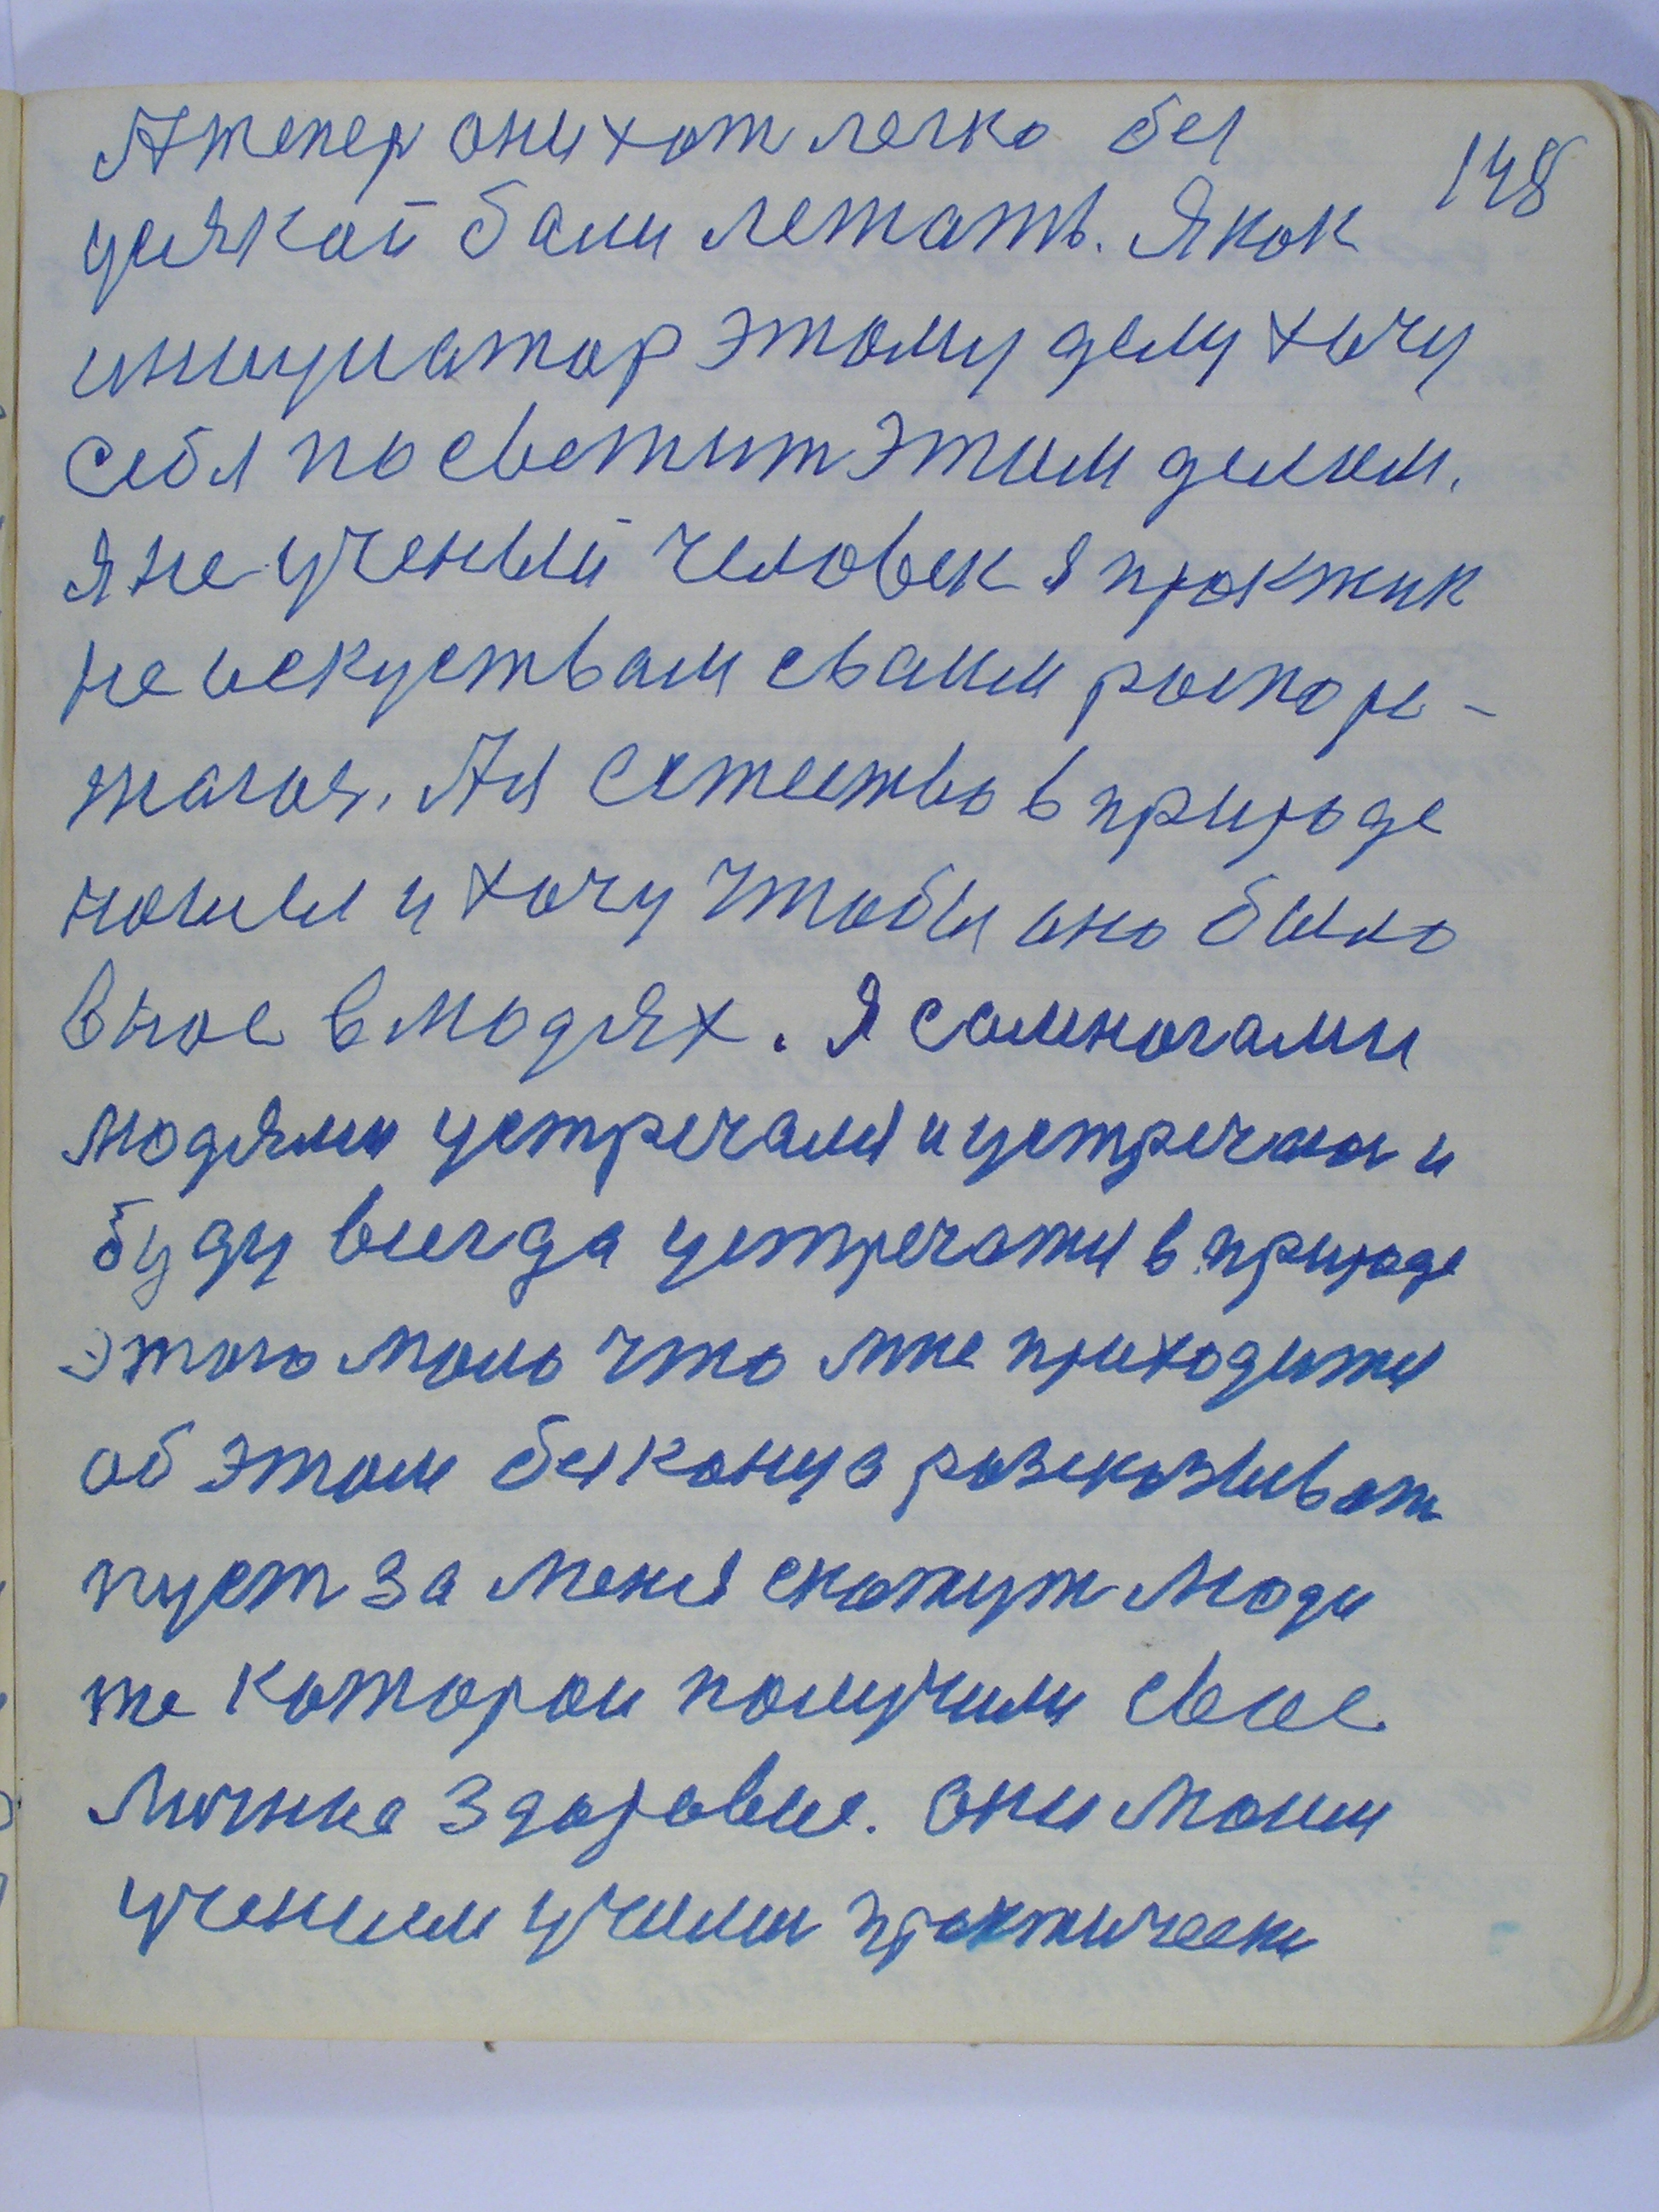 А тепер они хотт легко без
усякой боли летать. Я как
148
инициатор этому делу хочу
себя посветит этим делом.
я не ученый человек я практик
не искуством своим роспоря-
жаюся. А я естество в природе
нашел и хочу чтобы оно было
внас в людях. Я самногами
людями устречался и устречаюс и
буду всегда устречатся в природе
этого мало что мне приходится
об этом без конца разсказыват
пуст за меня скажут люди
те которои получили свое
личное здоровие. они моим
учением учились практически